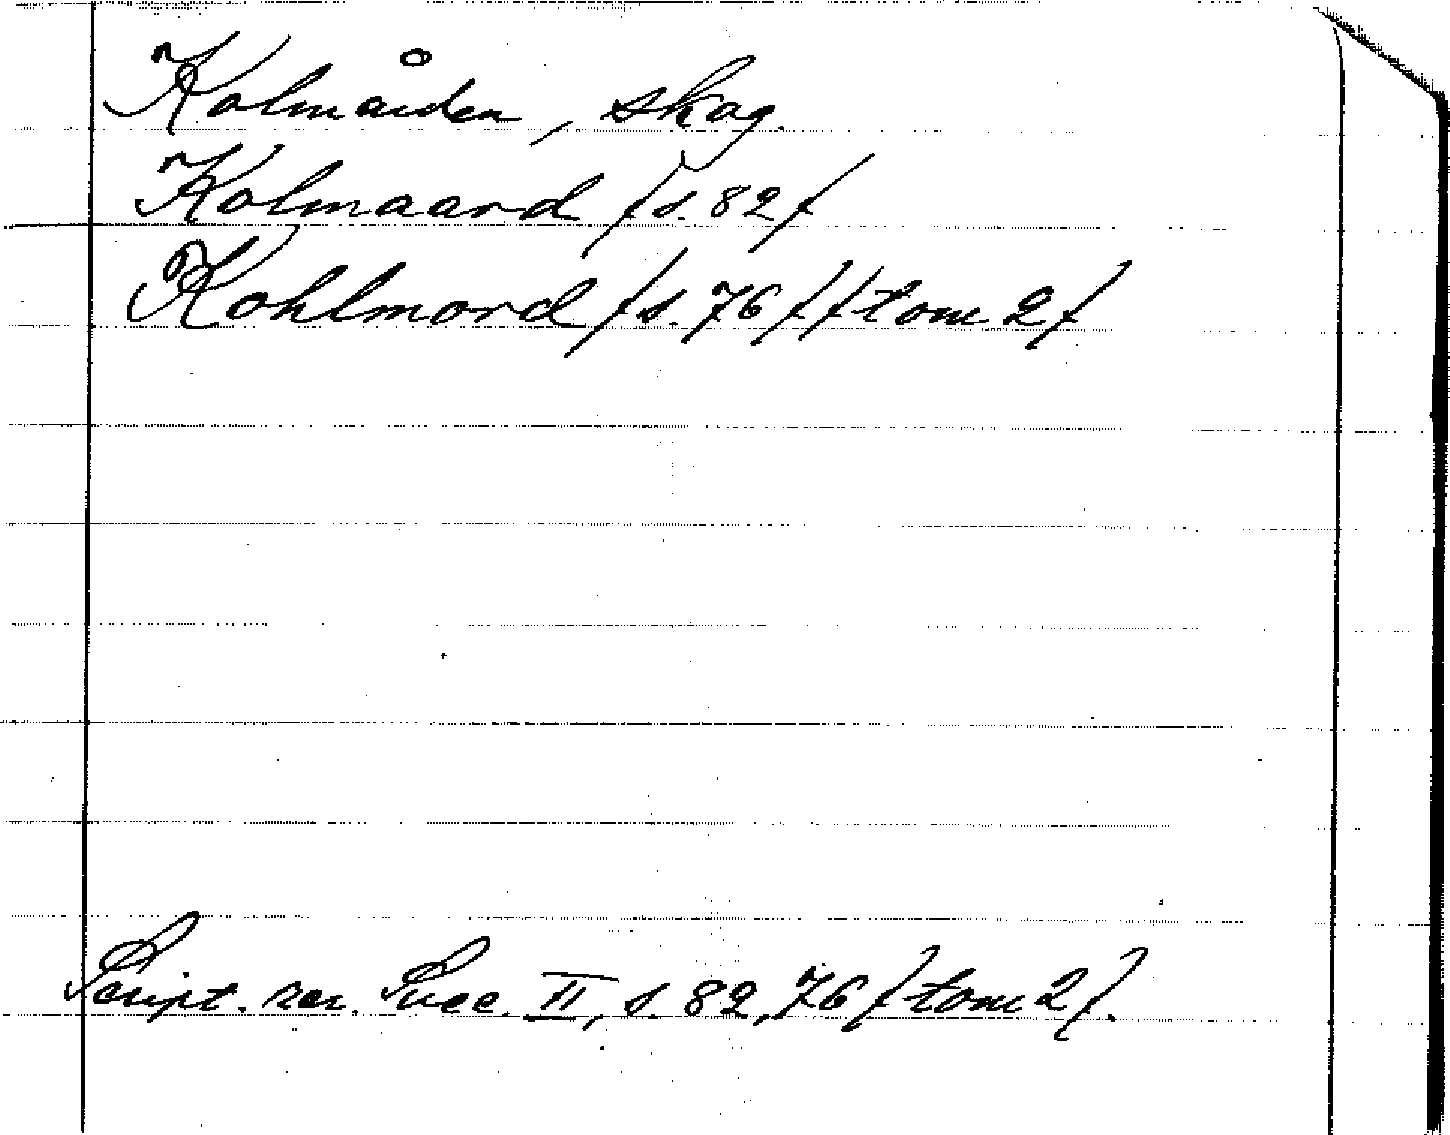 Kolmården, skog.
Kolmaard /s. 82/
Kohlmord /s. 76/ /tom 2/
Script. rer. Svec. II, s. 82, 76 /tom 2/.